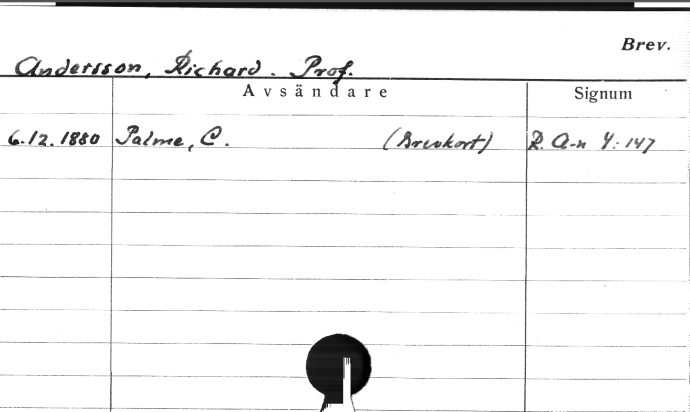 Brev.
Andersson, Richard. Prof.
Avsändare Signum
6.12.1880 Palme, C. (Brevkort) R. A-n Y: 147